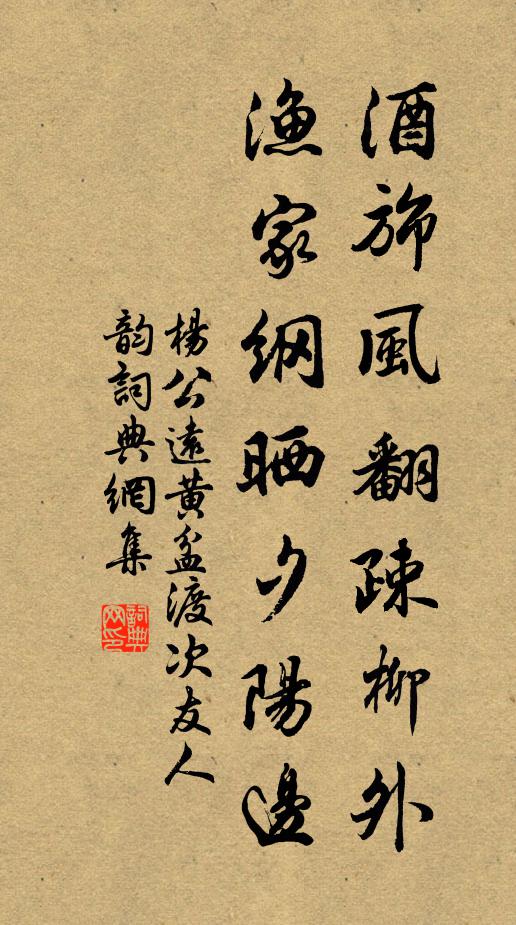 酒旆風翻疎柳外
漁家網晒夕陽邊
楊公遠黃盆渡次友人
韵詞典網集
詞典網印